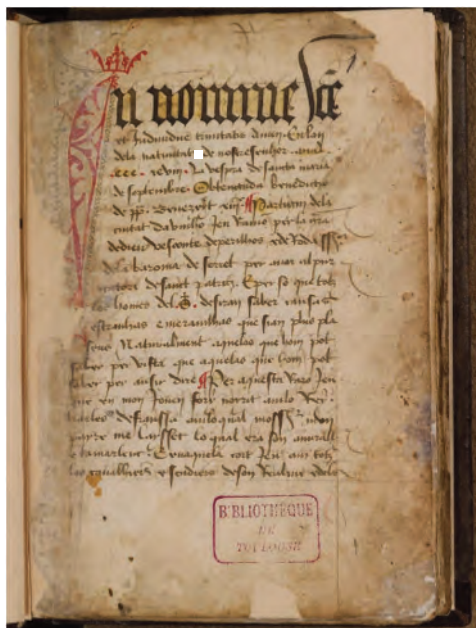 In nomine sce
et Indiuidue trinitatis Amen En lan
dela natiuitat de nostre senhor
ccc. xcvii. La vespra de santa maria
de septembre. Obtenguda benedictio
de pp. Benezeyt xiii. Partim dela
ciutat dauinho Jen Ramon per la gra
de dieu vescomte deperilhos e de Roda
dela baronia de seret per anar al pur
gatori de sant patrici. E per so que totz
los homes del desiran saber causas
estranhas e merauilhas que sian plus pla
sens. Naturalment aquelas que hom pot
saber per vista que aquelas que hom pot
saber per ausir dire Per aquesta raso Jen
que en mon Jouen foru norrit amb lo Rey
de fransa amb loqual moss
payre me laysset lo qual era son amirall
e camarlenc. En aquela cort Jen am totz
los cavalliers e scudiers de son Realme
BIBLIOTHEQUE
DE
TOULOUSE